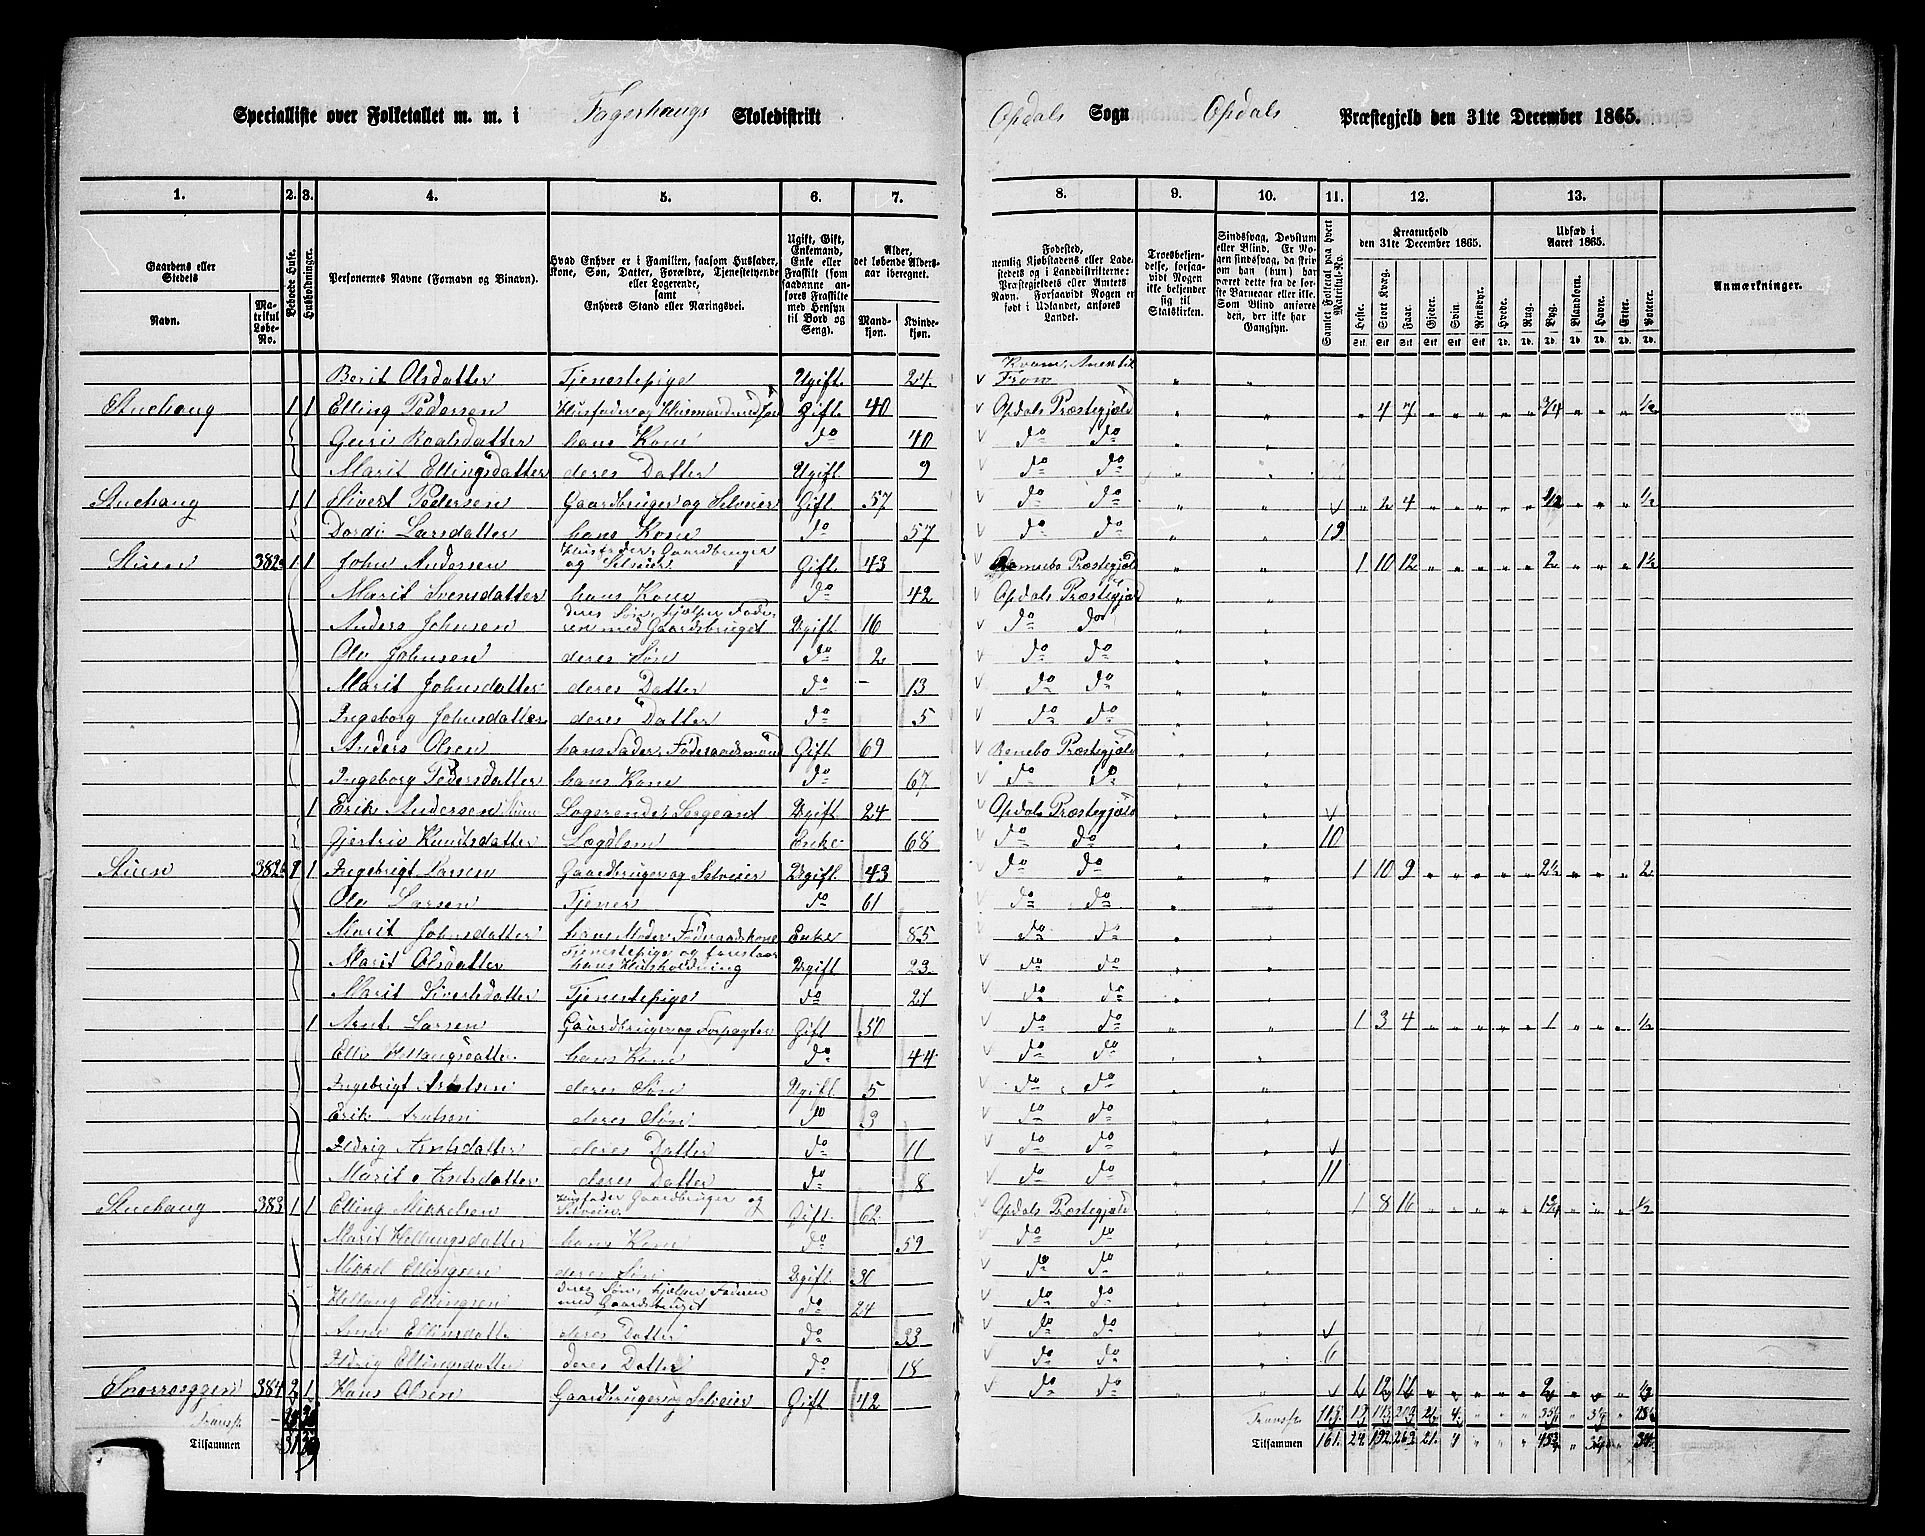 Specialliste over Folketallet m. m. i Fagerhaugs Skoledistrikt Opdals Sogn Opdals Præstegjeld den 31te December 1865.
1. 2. 3. 4. 5. 6. 7. 8. 9. 10. 11. 12. 13.
Gaardens eller Stedets
Navn.
Matrikul Løbe-No.
Beboede Huse.
Husholdninger.
Personernes Navne (Fornavn og Binavn).
Hvad Enhver er i Familien, saasom Husfader, Kone, Søn, Datter, Forældre, Tjenestetyende eller Logerende, samt Enhvers Stand eller Næringsvei.
Ugift, Gift, Enkemand, Enke eller Fraskilt (som saadanne anføres Fraskilte med Hensyn til Bord og Seng).
Alder, det løbende Aldersaar iberegnet.
Mandkjøn.
Kvindekjøn.
Fødested, nemlig Kjøbstadens eller Ladestedets og i Landdistrikterne: Præstegjeldets eller Amtets Navn. Forsaavidt Nogen er født i Udlandet, anføres Landet.
Troesbekjendelse, forsaavidt Nogen ikke bekjender sig til Statskirken.
Sindssvag, Døvstum eller Blind. Er Nogen sindssvag, da skrives om han (hun) har været dette fra de første Barneaar eller ikke. Som Blind anføres den, der ikke har Gangsyn.
Samlet Folketal paa hvert Matrikul-No.
Kreaturhold den 31te December 1865.
Heste. Stort Kvæg. Faar. Gjeder. Svin. Rensdyr.
Udsæd i Aaret 1865.
Hvede. Rug. Byg. Blandkorn. Havre. Erter. Poteter.
Anmærkninger.
Berit Olsdatter Tjenestepige Ugift 24 Fron
Stuehaug 1 1 Elling Pedersen Husfader og Gift 40 Opdals Præstegjæld 4 7 3/4 1/2
Guri Roalsdatter hans Kone do 40 do do
Marit Ellingsdatter deres Datter Ugift 9 do do
Stuehaug 1 1 Sivert Pedersen Gaardbruger og Selveier Gift 57 do do 2 4 1/2 1/2
Dordi Larsdatter hans Kone do 57 do do 19
Stuen 382a 1 1 John Andersen Husfader, Gaardbruger og Selveier Gift 43 Præstegjæld 1 10 12 2 1½
Marit Svensdatter hans Kone do 42 Opdals Præstegjæld
Anders Johnsen deres Søn, hjelper Faderen med Gaardsbruget Ugift 16 do do
Ole Johnsen deres Søn do 2 do do
Marit Johnsdatter deres Datter do 13 do do
Ingeborg Johnsdatter deres Datter do 5 do do
Anders Olsen hans Fader, Føderaadsmand Gift 69 Præstegjæld
Ingeborg Pedersdatter hans Kone do 67 do do
1 Erik Andersen Logerende, Sergeant Ugift 24 Opdals Præstegjæld
Gjertrud Knudsdatter Lægdlem Enke 68 do do 10
Stuen 382b 1 Ingebrigt Larsen Gaardbruger og Selveier Ugift 43 do do 1 10 9 2½ 2
Ole Larsen Tjener do 61 do do
Marit Johnsdatter hans Moder, Føderaadskone Enke 85 do do
Marit Olsdatter Tjenestepige og forestaar hans Husholdning Ugift 23 do do
Marit Sivertsdatter Tjenestepige do 21 do do
1 Arnt Larsen Gaardbruger og Forpagter Gift 50 do do 1 3 4 1 1/2
Elli Hellaugsdatter hans Kone do 44 do do
Ingebrigt Arntsen deres Søn Ugift 5 do do
Erik Arntsen deres Søn do 3 do do
Ildrig Arntsdatter deres Datter do 11 do do
Marit Arntsdatter deres Datter do 8 do do 11
Stuehaug 383 1 1 Elling Mikkelsen Husfader Gaardbruger og Selveier Gift 62 Opdals Præstegjæld 1 8 16 1¾ 1/2
Marit Hellaugsdatter hans Kone do 59 do do
Mikkel Ellingsen deres Søn Ugift 30 do do
Hellaug Ellingsen deres Søn, hjelper Faderen med Gaardsbruget do 24 do do
Ellingsdatter deres Datter do 23 do do
Ildrig Ellingsdatter deres Datter do 18 do do 6
Snorroeggen 384 2 1 Hans Olsen Gaardbruger og Selveier Gift 42 do do
Transp. Transp.
Tilsammen 31 39 Tilsammen 161 24 192 263 21 4